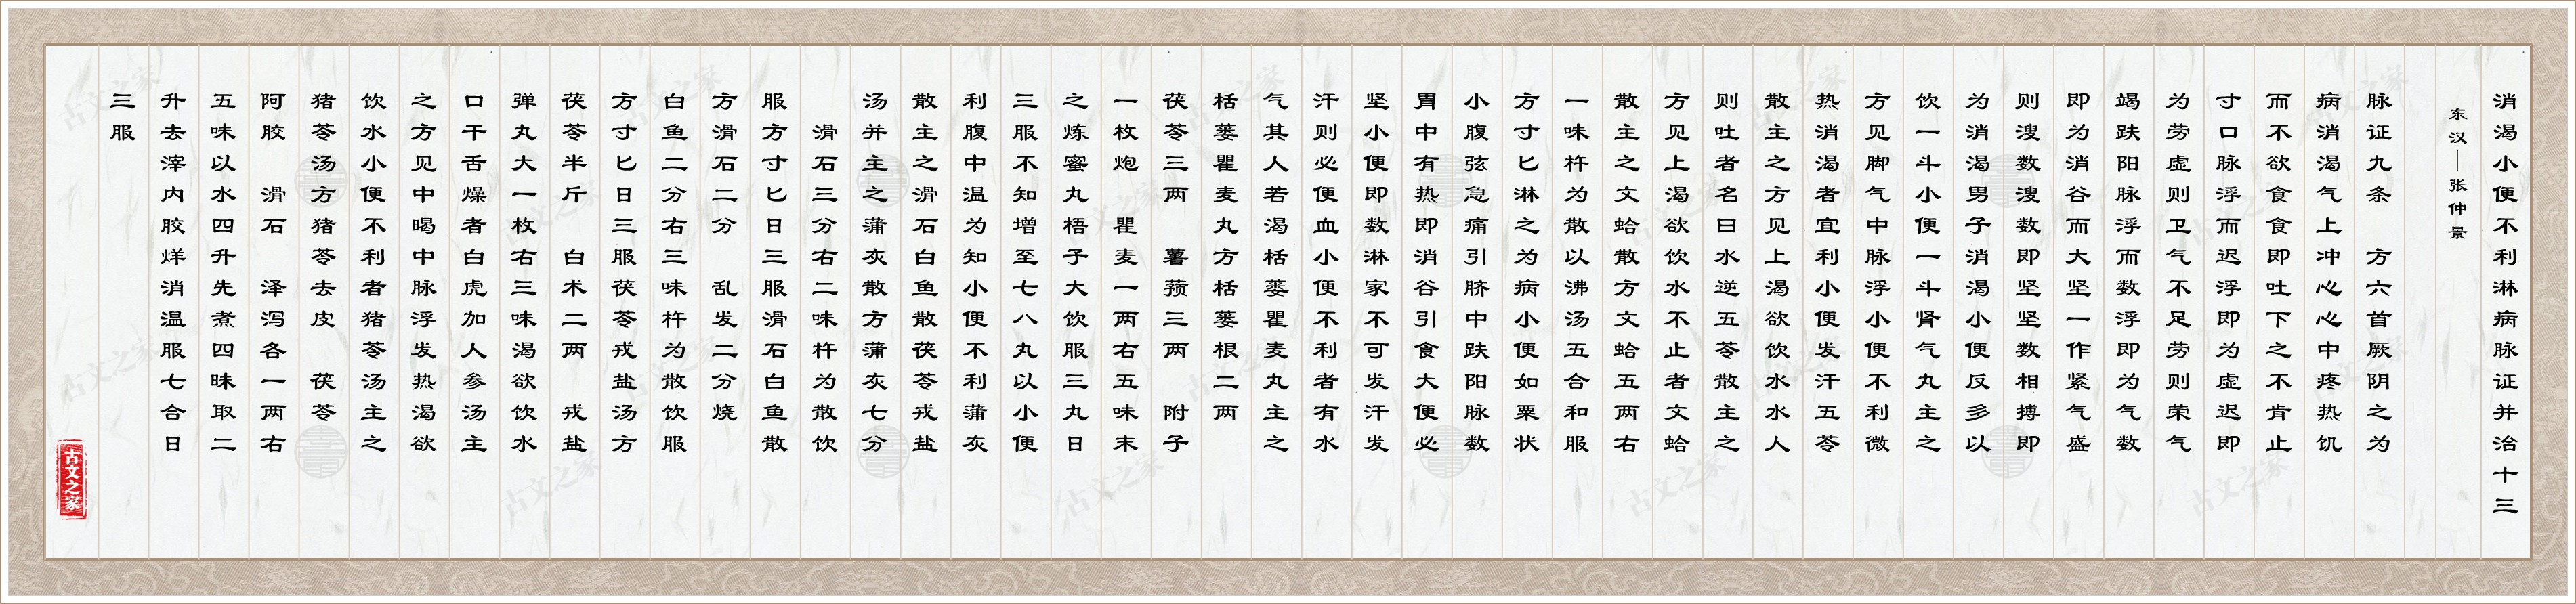 消渴小便不利淋病脉证并治十三
东汉—张仲景
脉证九条 方六首厥阴之为
病消渴气上冲心心中疼热饥
而不欲食食即吐下之不肯止
寸口脉浮而迟浮即为虚迟即
为劳虚则卫气不足劳则荣气
竭趺阳脉浮而数浮即为气数
即为消谷而大坚一作紧气盛
则溲数溲数即坚坚数相搏即
为消渴男子消渴小便反多以
饮一斗小便一斗肾气丸主之
方见脚气中脉浮小便不利微
热消渴者宜利小便发汗五苓
散主之方见上渴欲饮水水人
则吐者名曰水逆五苓散主之
方见上渴欲饮水不止者文蛤
散主之文蛤散方文蛤五两右
一味杵为散以沸汤五合和服
方寸匕淋之为病小便如粟状
小腹弦急痛引脐中趺阳脉数
胃中有热即消谷引食大便必
坚小便即数淋家不可发汗发
汗则必便血小便不利者有水
气其人若渴栝蒌瞿麦丸主之
栝蒌瞿麦丸方栝蒌根二两
茯苓三两 薯蓣三两 附子
一枚炮 瞿麦一两右五味末
之炼蜜丸梧子大饮服三丸日
三服不知增至七八丸以小便
利腹中温为知小便不利蒲灰
散主之滑石白鱼散茯苓戎盐
汤并主之蒲灰散方蒲灰七分
 滑石三分右二味杵为散饮
服方寸匕日三服滑石白鱼散
方滑石二分 乱发二分烧
白鱼二分右三味杵为散饮服
方寸匕日三服茯苓戎盐汤方
茯苓半斤 白术二两 戎盐
弹丸大一枚右三味渴欲饮水
口干舌燥者白虎加人参汤主
之方见中暍中脉浮发热渴欲
饮水小便不利者猪苓汤主之
猪苓汤方猪苓去皮 茯苓
阿胶 滑石 泽泻各一两右
五味以水四升先煮四昧取二
升去滓内胶烊消温服七合日
三服
古文之家